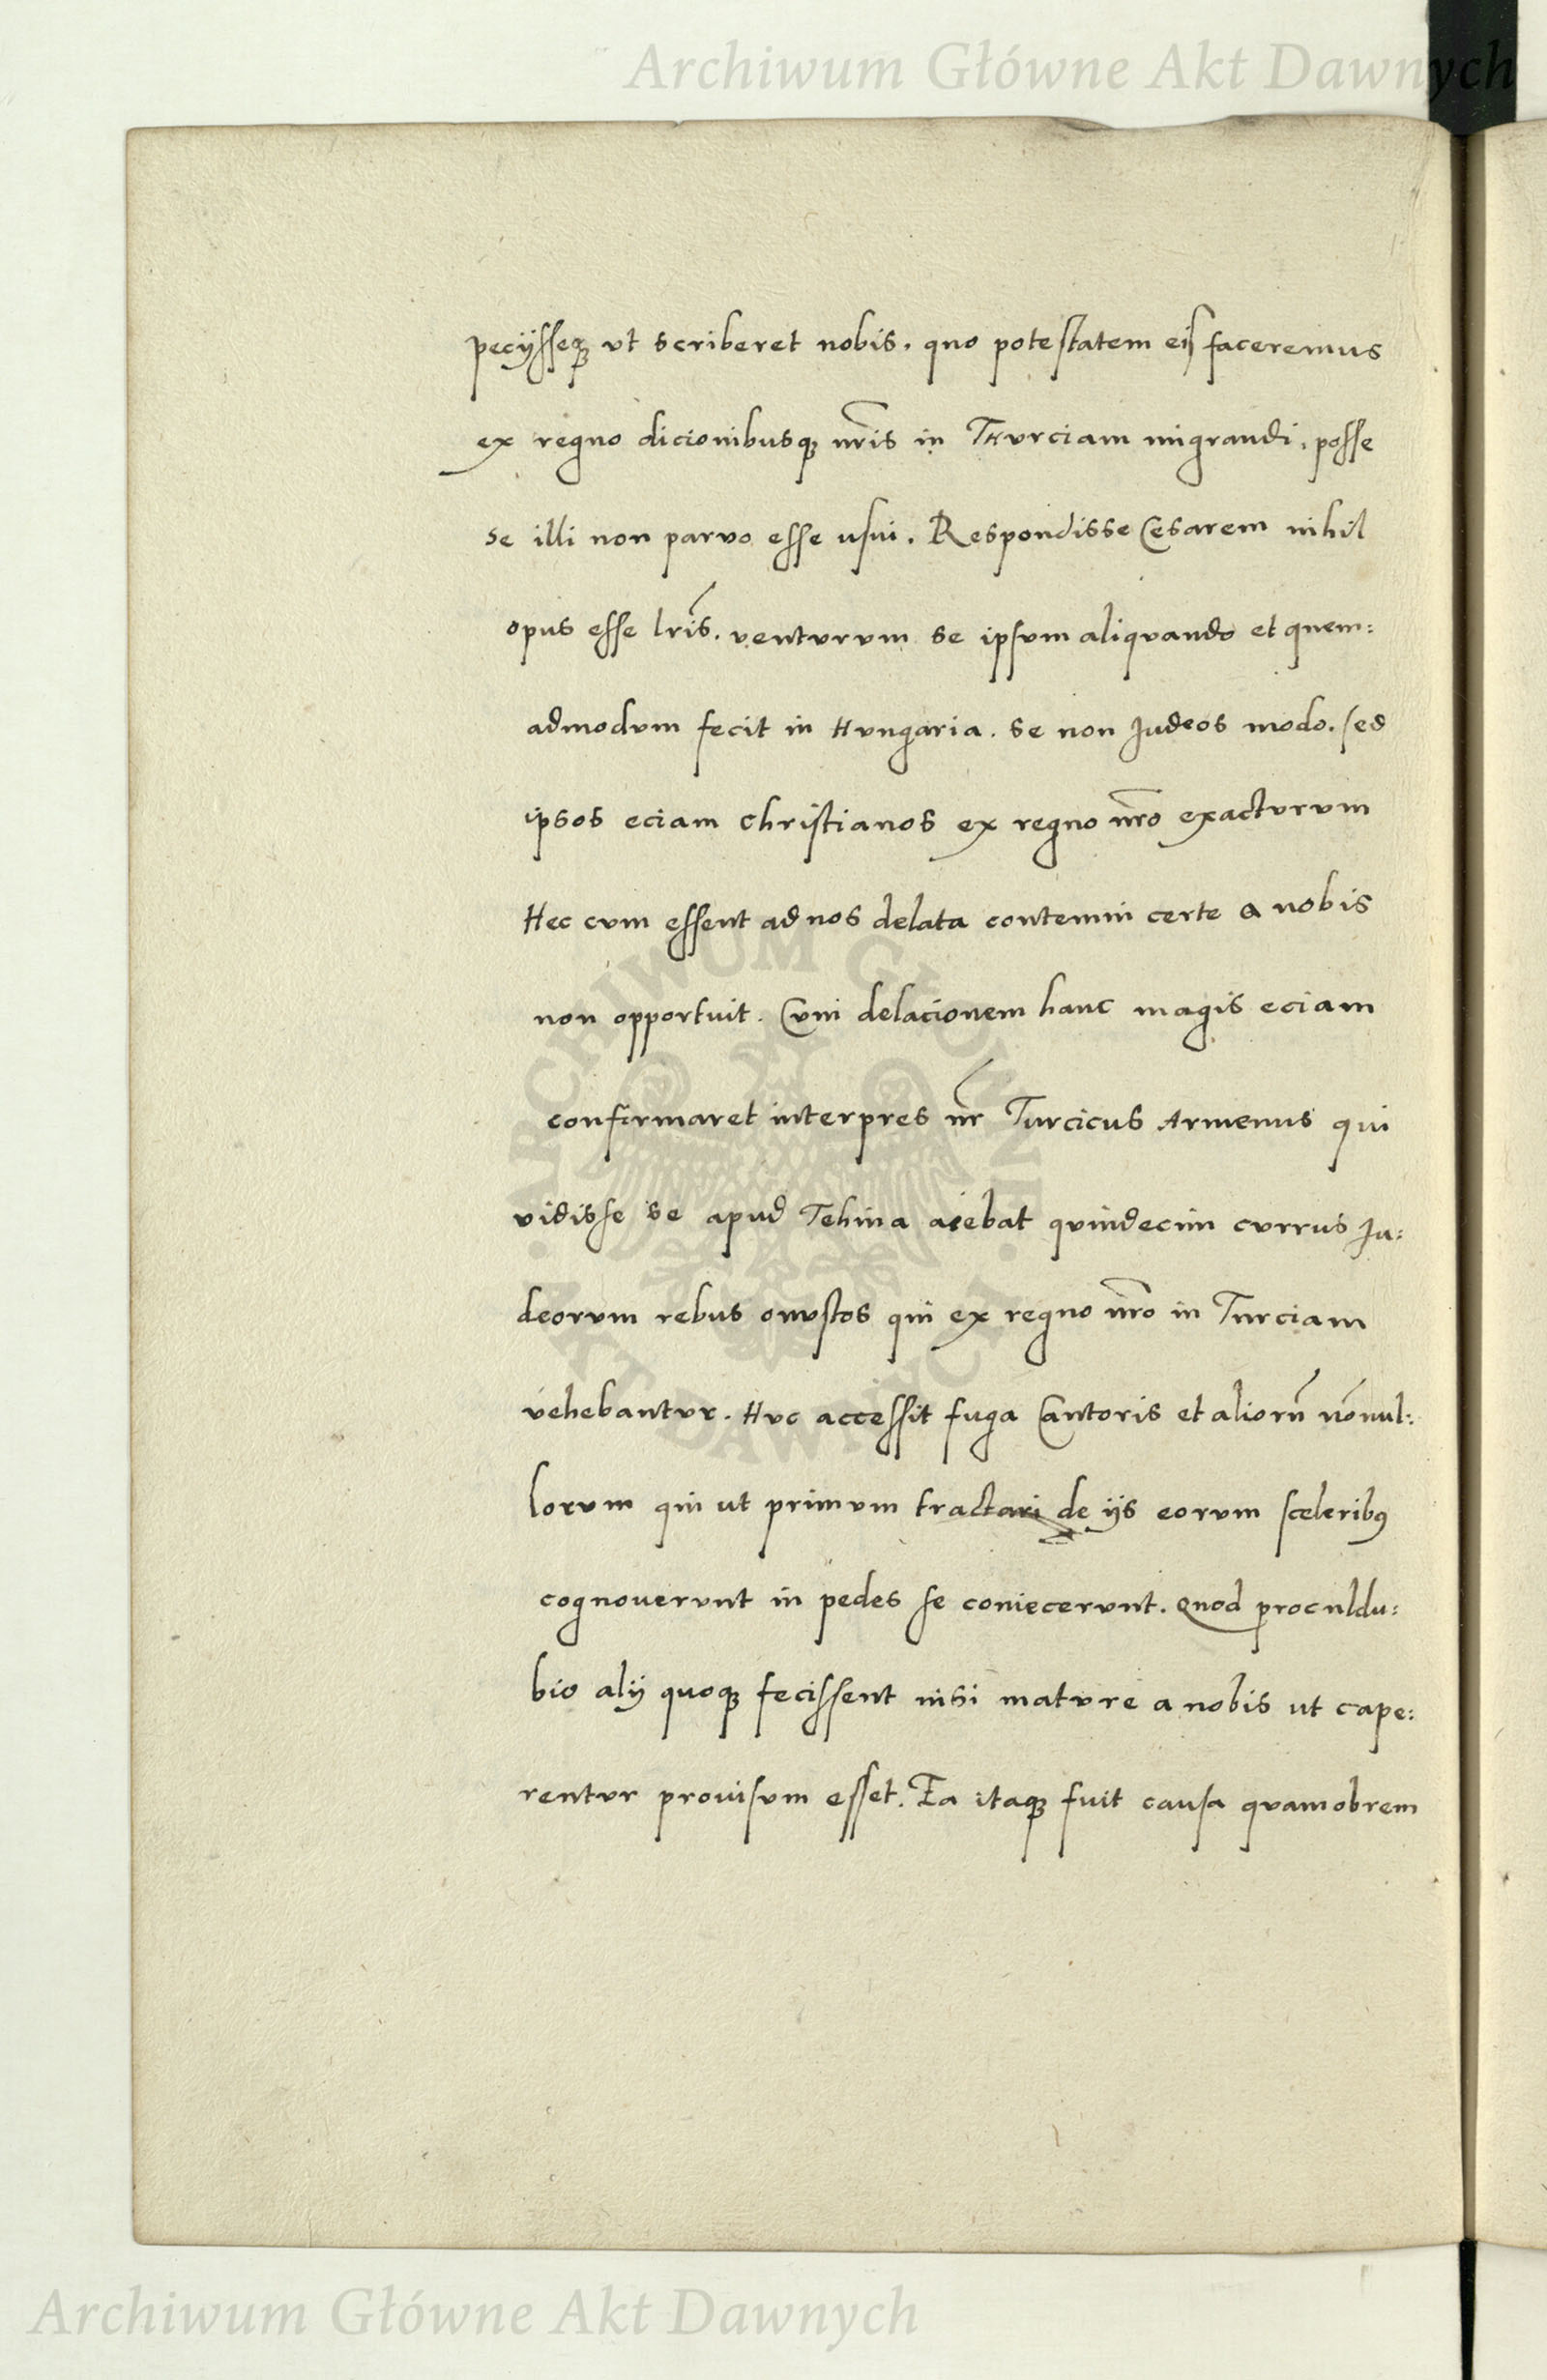 Archiwum Główne Akt Dawnych
pecijsseq ut scriberet nobis. quo potestatem eis faceremus
ex regno dicionibusq nr̃is in Thurciam migrandi. posse
se illi non parvo esse usui. Respondisse Cesarem nihil
opus esse lr̃is. venturum se ipsum aliquando et quem:
admodum fecit in Hungaria. se non Judeos modo. sed
ipsos eciam christianos ex regno nr̃o exacturum
Hec cum essent ad nos delata contemni certe a nobis
non opportuit. Cum delacionem hanc magis eciam
confirmaret interpres nr̃ Turcicus Armenus qui
vidisse se apud Tehina aiebat quindecim currus Ju:
deorum rebus onustos qui ex regno nr̃o in Turciam
vehebantur. Huc accessit fuga Cantoris et aliorũ nõnul:
lorum qui ut primum tractari de ijs eorum sceleribꝰ
cognoverunt in pedes se coniecerunt. Quod proculdu:
bio alij quoq fecissent nisi mature a nobis ut cape:
rentur provisum esset. Ea itaq fuit causa quamobrem
ARCHIWUM GŁÓWNE · AKT DAWNYCH ·
Archiwum Główne Akt Dawnych